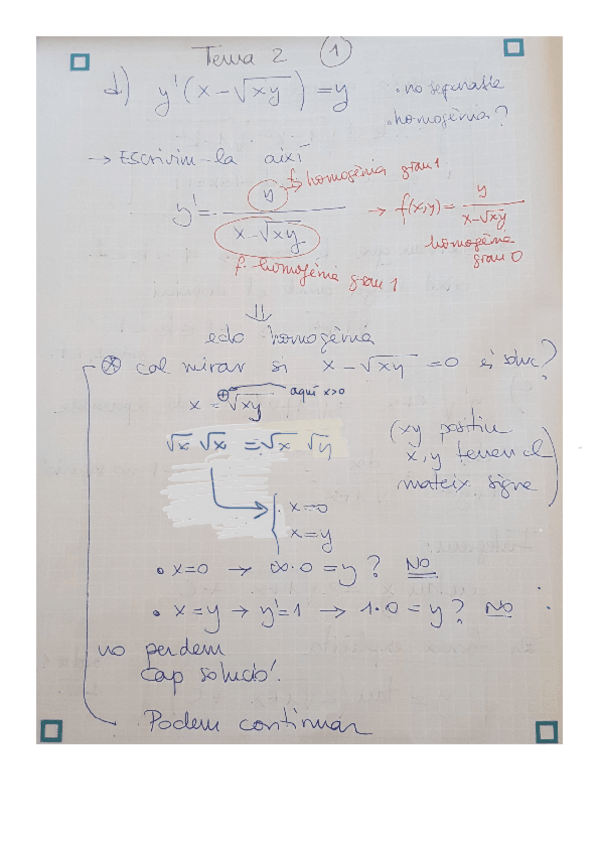 Tema 2 ①
d) y'(x-√xy) = y · no separable
· homogènia?
→ Escrivim-la així
y → f. homogènia grau 1
y' = ─── → f(x,y) = y / x-√xy
x-√xy homogènia
grau 0
f. homogènia grau 1
⇓
edo homogènia
⊛ cal mirar si x-√xy = 0 és soluc?
x = ⊕√xy aquí x>0
√x √x = √x √y (xy positiu
x, y tenen el
mateix signe)
x=0
x=y
• x=0 → ∞·0 = y? No
• x=y → y'=1 → 1·0 = y? No
no perdem
cap solució.
Podem continuar